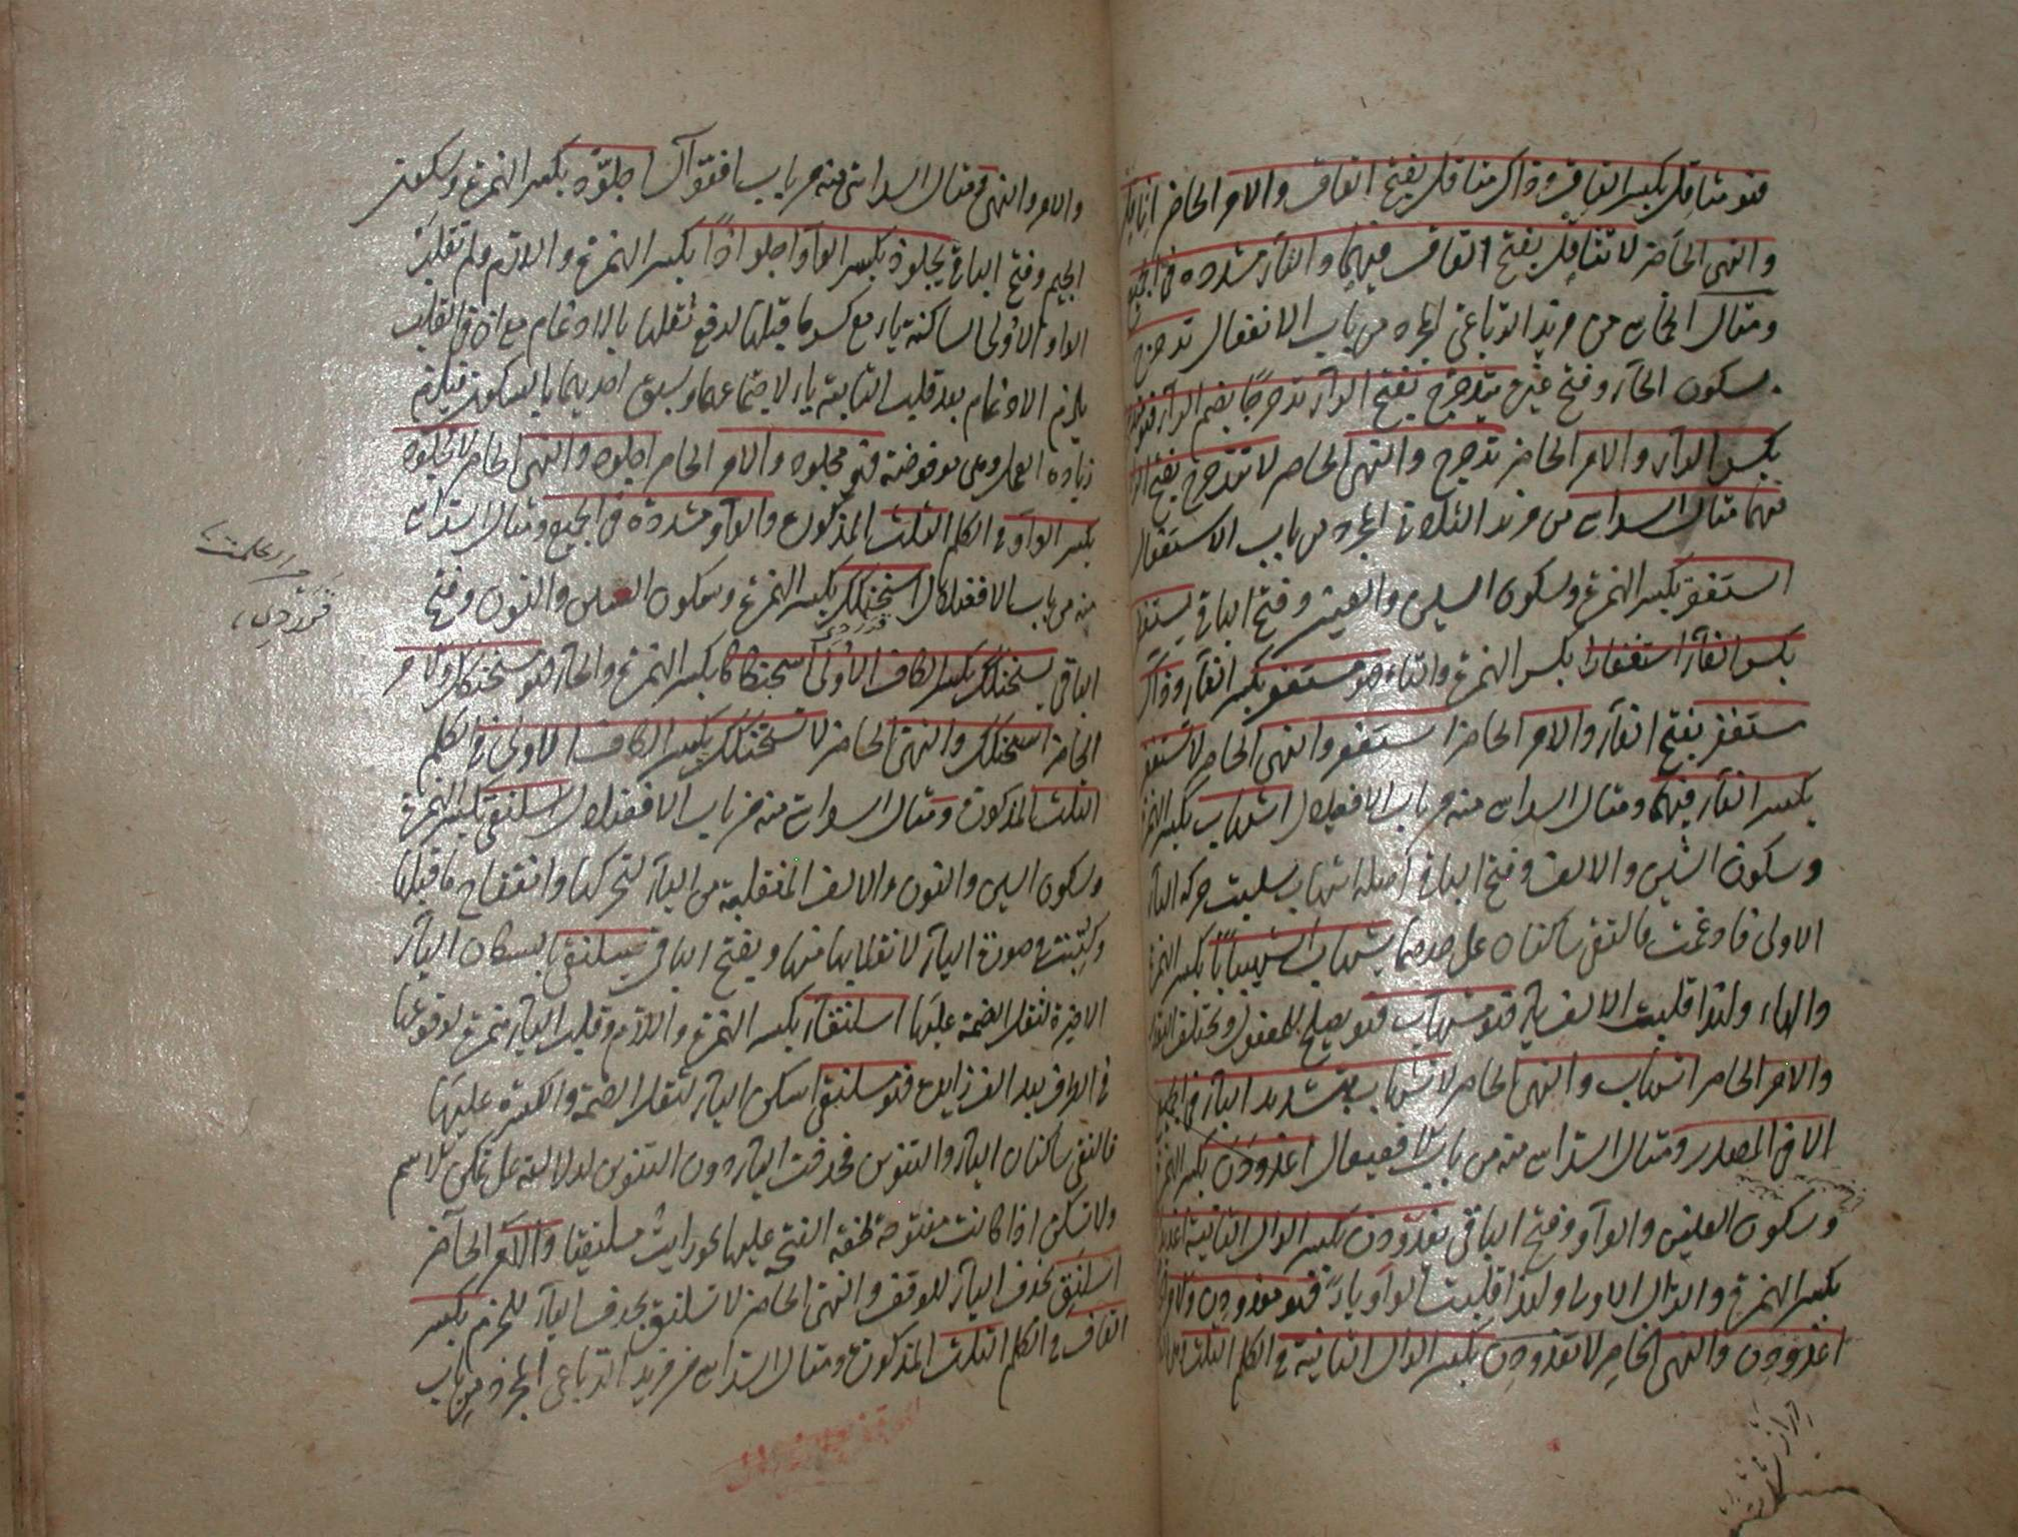 فهو متثاقل بكسر القاف وذاك متثاقل بفتح القاف والامر الحاضر اثاقل
والنهى الحاضر لا تثاقل بفتح القاف فيهما والثاء مشددة فى الجميع
ومثال الخماسى من مزيد الرباعى المجرد من باب الانفعال تدحرج
بسكون الحاء وفتح غيره يتدحرج بفتح الراء تدحرجا بضم الراء فهو
بكسر الراء والامر الحاضر تدحرج والنهى الحاضر لا تتدحرج بفتح الراء
فيهما مثال السداسى من مزيد الثلاثى المجرد من باب الاستفعال
استغفر بكسر الهمزة وسكون السين والغين وفتح الباقى يستغفر
بكسر الفاء استغفارا بكسر الهمزة والتاء فهو مستغفر بكسر الفاء وذاك
مستغفر بفتح الفاء والامر الحاضر استغفر والنهى الحاضر لا تستغفر
بكسر الفاء فيهما ومثال السداسى منه من باب الافعيلال اشهاب بكسر الهمزة
وسكون الشين والالف وفتح الباقى اصله اشهابب سلبت حركة الباء
الاولى فادغمت فالتقى ساكنان على حدهما يشهاب اشهيبابا بكسر الهمزة
والهاء ولذا قلبت الالف ياء فهو مشهاب فهو يصلح للمفعول
والامر الحاضر اشهاب والنهى الحاضر لا تشهاب بتشديد الباء فى الجميع
الا فى المصدر ومثال السداسى منه من باب الافعيعال اغدودن بكسر الهمزة
وسكون الغين والواو وفتح الباقى يغدودن بكسر الدال الثانية
بكسر الهمزة والدال الاولى ولذا قلبت الواو ياء فهو مغدودن والامر
اغدودن والنهى الحاضر لا تغدودن بكسر الدال الثانية فى الكلم الثلث
والامر والنهى ومثال السداسى منه من باب افعوال اجلوذ بكسر الهمزة وسكون
الجيم وفتح الباقى يجلوذ بكسر الواو اجلواذا بكسر الهمزة واللام ولم تقلب
الواو الاولى الساكنة ياء مع كسر ما قبلها لدفع ثقلها بالادغام مع انه فى القلب
يلزم الادغام بعد قلب الثانية ياء لاجتماعهما وسبق احديهما بالسكون فيلزم
زيادة العمل وهى مرفوضة فهو مجلوذ والامر الحاضر اجلوذ والنهى الحاضر لا تجلوذ
بكسر الواو فى الكلم الثلث المذكورة والواو مشددة فى الجميع ومثال السداسى
منه من باب الافعنلال اسحنكك بكسر الهمزة وسكون السين والنون وفتح
الباقى يسحنكك بكسر الكاف الاولى اسحنكاكا بكسر الهمزة والحاء فهو مسحنكك والامر
الحاضر اسحنكك والنهى الحاضر لا تسحنكك بكسر الكاف الاولى فى الكلم
الثلث المذكورة ومثال السداسى منه من باب الافعنلال اسلنقى بكسر الهمزة
وسكون السين والنون والالف المنقلبة من الياء لتحركها وانفتاح ما قبلها
وكتبت فى صورة الياء لانقلابها منها وبفتح الباقى يسلنقى باسكان الياء
الاخيرة لثقل الضمة عليها اسلنقاء بكسر الهمزة واللام وقلب الياء همزة لوقوعها
فى الطرف بعد الف زايدة فهو مسلنق اسكن الياء لثقل الضمة والكسرة عليها
فالتقى ساكنان الياء والتنوين فحذفت الياء دون التنوين لدلالته على تمكن الاسم
ولا تسكن اذا كانت مفتوحة لخفة الفتح عليها نحو رايت مسلنقيا والامر الحاضر
اسلنق بحذف الياء للوقف والنهى الحاضر لا تسلنق بحذف الياء للجزم بكسر
القاف فى الكلم الثلث المذكورة ومثال السداسى من مزيد الرباعى المجرد من باب